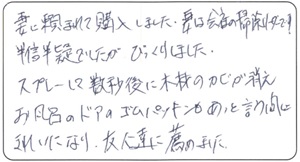 妻に頼まれて購入しました。妻は会社の掃除女です!
半信半疑でしたが びっくりしました。
スプレーして数秒後に木枝のカビが消え
お風呂のドアのゴムパッキンもあっと言う間に
きれいになり、友人達に薦めました。